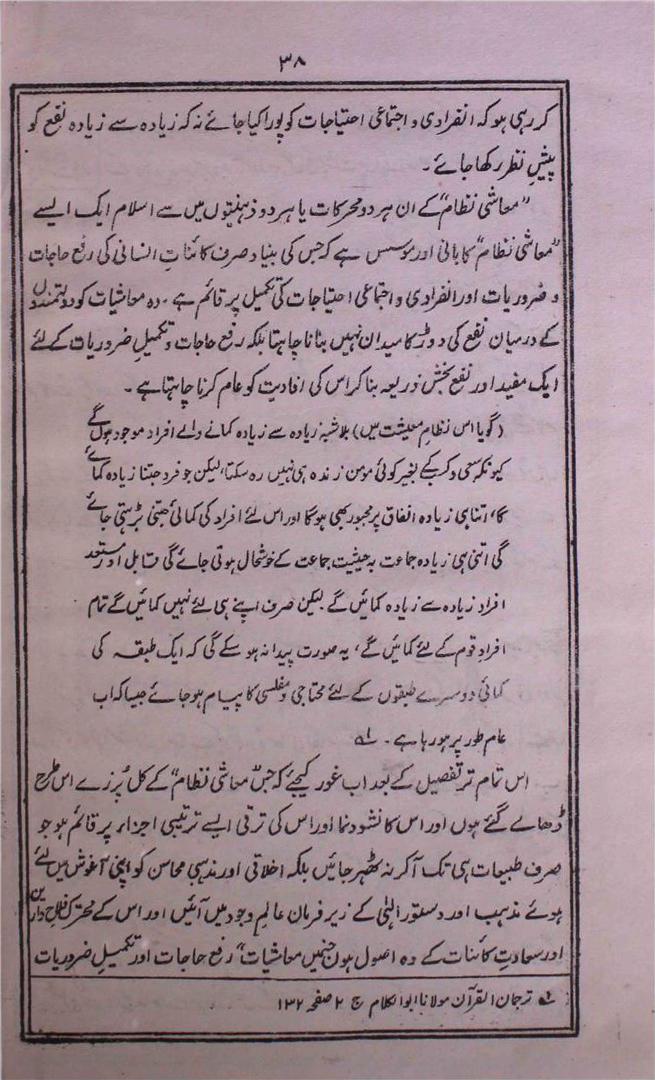 ۳۸
کر رہی ہو کہ انفرادی و اجتماعی احتیاجات کو پورا کیا جائے نہ کہ زیادہ سے زیادہ نفع کو
پیشِ نظر رکھا جائے۔
”معاشی نظام“ کے ان ہر دو محرکات یا ہر دو ذہنیتوں میں سے اسلام ایک ایسے
”معاشی نظام“ کا بانی اور مؤسس ہے کہ جس کی بنیاد صرف کائناتِ انسانی کی رفع حاجات
و ضروریات اور انفرادی و اجتماعی احتیاجات کی تکمیل پر قائم ہے۔ وہ معاشیات کو دولتمندوں
کے درمیان نفع کی دوڑ کا میدان نہیں بنانا چاہتا بلکہ رفع حاجات و تکمیلِ ضروریات کے لئے
ایک مفید اور نفع بخش ذریعہ بنا کر اس کی افادیت کو عام کرنا چاہتا ہے۔
(گویا اس نظامِ معیشت میں) بلاشبہ زیادہ سے زیادہ کمانے والے افراد موجود ہوں گے
کیونکہ سعی و کسب کے بغیر کوئی مومن زندہ ہی نہیں رہ سکتا، لیکن جو فرد جتنا زیادہ کمائے
گا، اتنا ہی زیادہ انفاق پر مجبور بھی ہوگا اور اس لئے افراد کی کمائی جتنی بڑہتی جائے
گی اتنی ہی زیادہ جماعت بہ حیثیت جماعت کے خوشحال ہوتی جائے گی قابل اور مستعد
افراد زیادہ سے زیادہ کمائیں گے لیکن صرف اپنے ہی لئے نہیں کمائیں گے تمام
افرادِ قوم کے لئے کمائیں گے، یہ صورت پیدا نہ ہو سکے گی کہ ایک طبقہ کی
کمائی دوسرے طبقوں کے لئے محتاجی و مفلسی کا پیام ہو جائے جیسا کہ اب
عام طور پر ہو رہا ہے۔ ؎۱
اس تمام تر تفصیل کے بعد اب غور کیجئے کہ جس ”معاشی نظام“ کے کل پُرزے اس طرح
ڈھالے گئے ہوں اور اس کا نشو و نما اور اس کی ترقی ایسے ترتیبی اجزاء پر قائم ہو جو
صرف طبیعات ہی تک آکر نہ ٹھہر جائیں بلکہ اخلاقی اور مذہبی محاسن کو اپنی آغوش میں لئے
ہوئے مذہب اور دستور الٰہی کے زیر فرمان عالمِ وجود میں آئیں اور اس کے محرک فلاحِ دارین
اور سعادتِ کائنات کے وہ اصول ہوں جنہیں معاشیات ”رفع حاجات اور تکمیلِ ضروریات
؎۱ ترجمان القرآن مولانا ابوالکلام ج ۲ صفحہ ۱۳۲